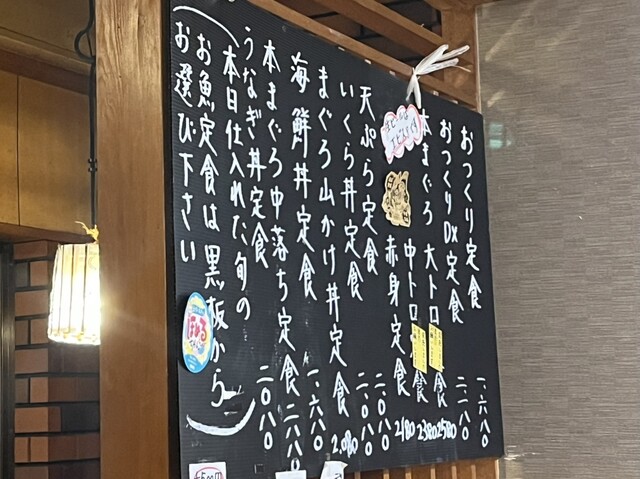 おつくり定食 一、六八〇
おつくりDX定食 二一八〇
本まぐろ 大トロ 定食 2580
中トロ 定食 2380
赤身定食 2180
天ぷら定食 二〇八〇
いくら丼定食 二〇八〇
まぐろ山かけ丼定食 2,080
海鮮丼定食 一、六八〇
本まぐろ中落ち定食 二〇八〇
うなぎ丼定食 二〇八〇
（本日仕入れた旬の
お魚定食は黒板から
お選び下さい）